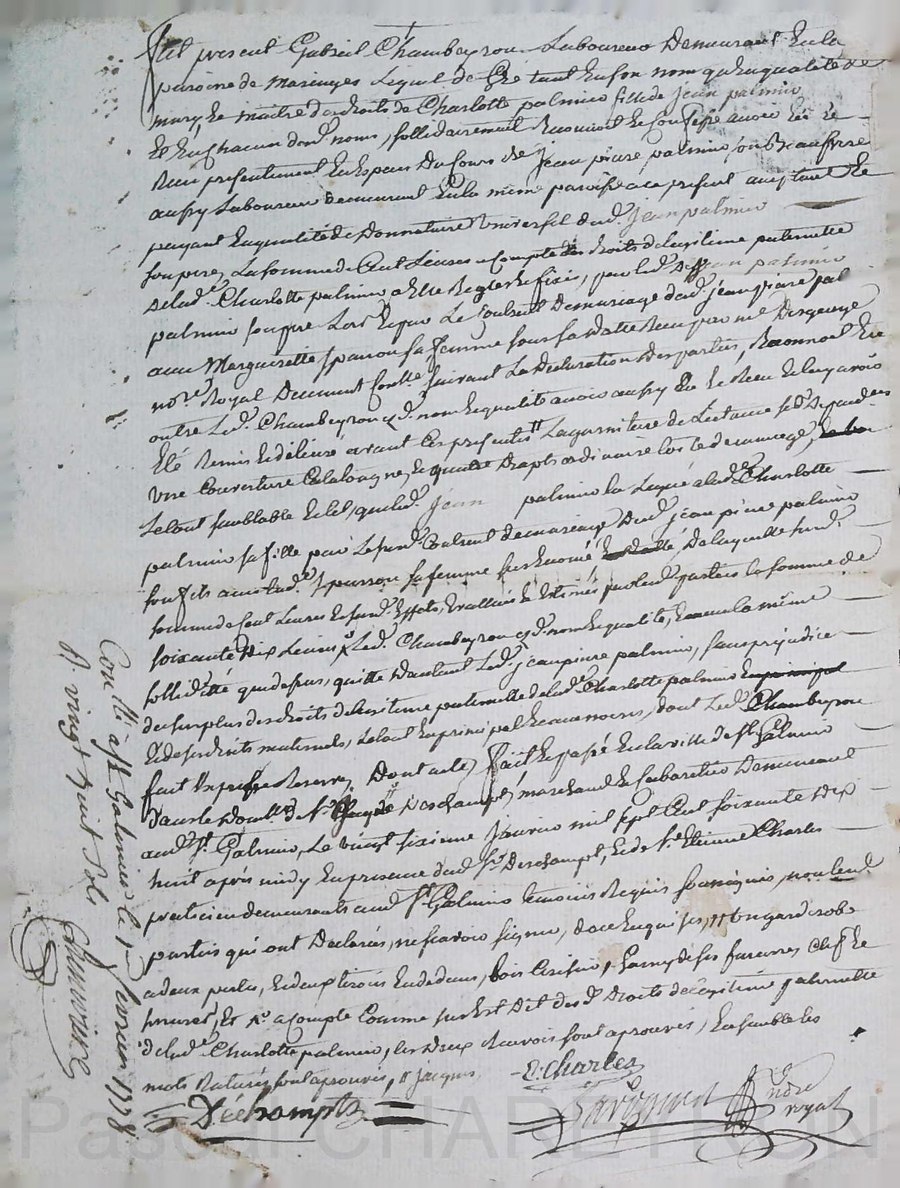 fut present Gabriel Chambeyron Laboureur Demeurant en la
paroisse de Maringes lequel de Gré tant en son nom qu'en qualité de
mary et maitre des droits de Charlotte palmier fille de jean palmier
Et en chacun desd. noms, sollidairement Reconnoit et Confesse avoir Eû et
Receu presentement en Espece Du Cours de jean piere palmier son Beaufrere
aussy Laboureur demeurant en la même paroisse a ce present acceptant et
payant En qualité de Donnataire Universel dud. jean palmier
son pere, La somme de Cent Livres a Compte des droits de Legitime paternelle
de lad.e Charlotte palmier a Elle Reglés et fixés, par led. jean palmier
palmier son pere Lors Et par Le Contrat De mariage dud. jean piere pal
avec Margueritte Sparron sa femme sous sa datte Receu par me Desgeorge
no.re Royal Duement Con.lle suivant La Declaration des parties, Reconnoit En
outre Led. Chambeyron esd. noms et qualité avoir aussy Eû et Receu et luy avoir
Eté Remis et délivré avant Ces presentes La garniture de Lit
Une Couverture Catalogne, quatre Draps
Le tout semblable Et tel, que led. jean palmier la Legué a lad.e Charlotte
palmier sa fille par Le susd. Contrat de mariage Dud. jean piere palmier
son fils avec lad.e Sparron sa femme De laquelle susd.
somme de Cent Livres et susd. Effets, Evallués et Estimés par lesd. parties la somme de
soixante Dix Livres Led. Chambeyron esd. noms et qualité, Et avec la même
sollidité que dessus, quitte D'autant Led. jean piere palmier, sans prejudice
du surplus des droits de Legitime paternelle de lad.e Charlotte palmier
Et de ses droits maternels, Le tout En principal et accessoires, dont Led. Chambeyron
fait Expresse Reserve, Dont acte, fait Et passé En la ville de St. Galmier
dans le domicille de Sr. Deschampt, marchand et Cabaretier Demeurant
aud. St. Galmier, Le vingt sixieme janvier mil sept Cent soixante dix
huit après midy En presence dud. Sr. Deschampt, Et de Sr. Etienne Charles
praticien demeurants aud. St. Galmier temoins Requis soussignés, non lesd.
parties qui ont Declarés, ne scavoir signer, de ce Enquises, un gard'robe
a deux portes, Et deux tiroirs En dedans, bois Cerisier, Garny de ses ferrures Clefs et
serrures, Et a Compte Comme sus Est Dit desd. Droits de Legitime paternelle
de lad.e Charlotte palmier, les Deux Renvois sont aprouvés, Ensemble les
mots Raturés sont aprouvés, jacques E. Charles
Dechampt
Con.llé a St. Galmier le 1er fevrier 1778
R. vingt huit sols
Pascal CHAPEYRON